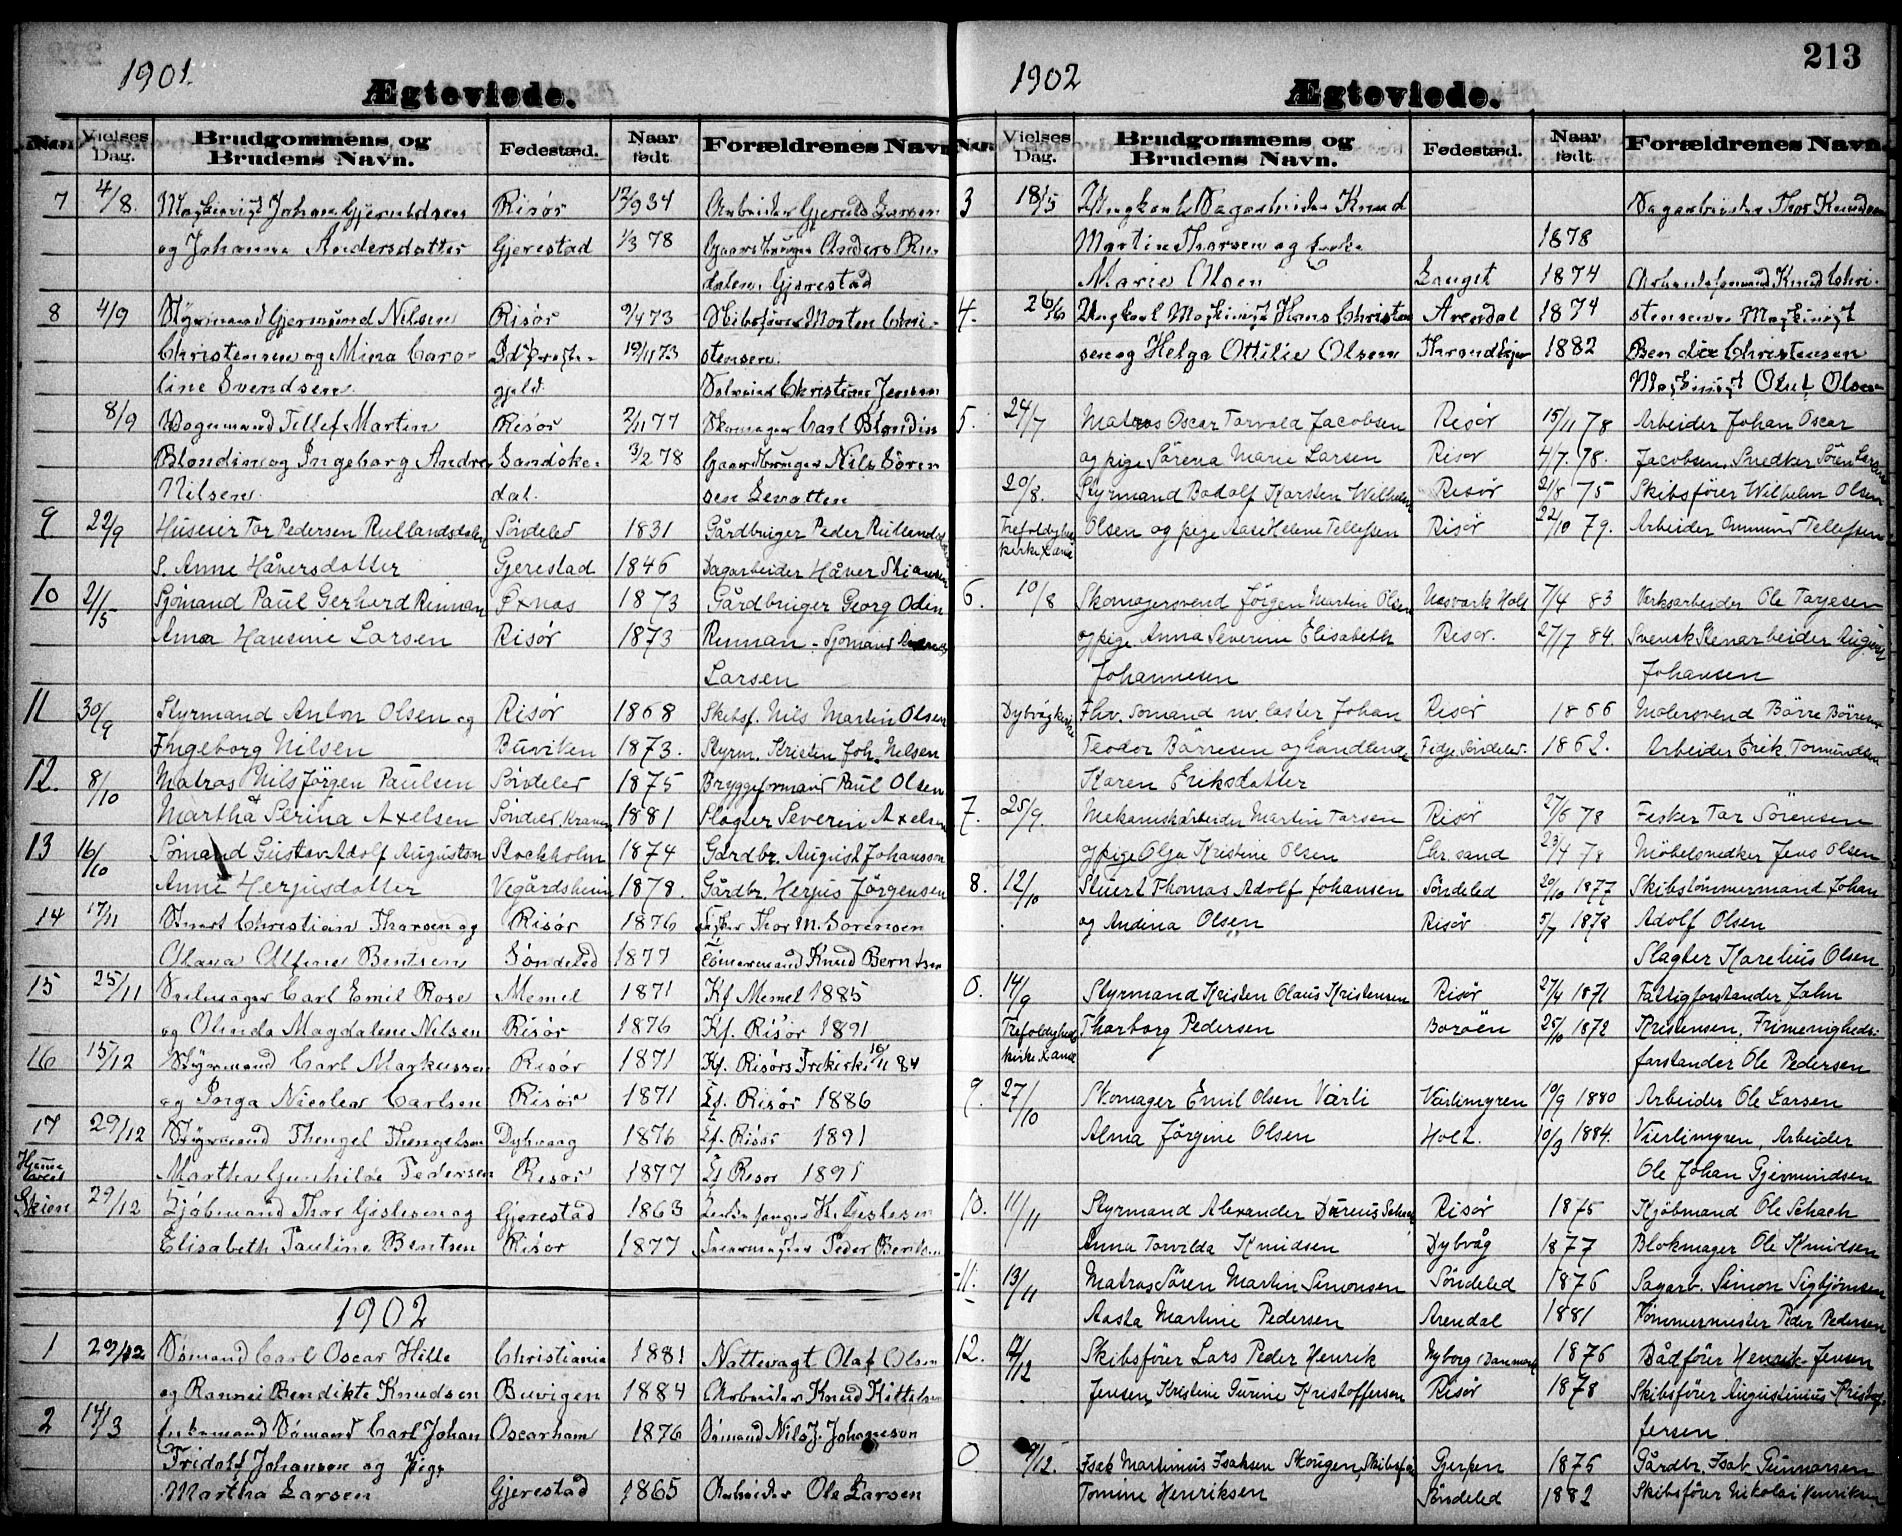 1901.
Ægteviede.
Vielses Dag.
Brudgommens og Brudens Navn.
Fødested.
Naar født
Forældrenes Navn
7 4/8. Johan Gjermundsen Risør 12/9 34 Arbeider Gjerulf Larsen
og Johanne Andersdatter Gjerestad 1/3 78 Anders
Gjerestad
8 4/9 Styrmand Gjermund Nilsen Risør 9/4 73 Skibsfører Morten Chri-
Christensen og Mina Caro- 19/11 73 stensen.
line Svendsen. gjeld. Christian Jensen
8/9 Tellef Martin Risør 2/11 77 Skomager Carl Blondin
Blondin og Ingeborg Andrea Sandøke- 3/2 78 Gaardbruger Nils Sören
Nilsen. dal. sen Levatten
9 22/9 Huseier Tor Pedersen Rullandsdalen Söndeled 1831 Gårdbruger Peder
S. Anne Håversdatter Gjerestad 1846 Dagarbeider Håver
10 2/5 Sjömand Paul Gerherd Rinnan 1873 Gårdbruger Georg Odin
Anna Hansine Larsen Risör 1873 Rinnan - Sjömand
Larsen
11 30/9 Styrmand Anton Olsen og Risör 1868 Skibsf. Nils Martin Olsen
Ingeborg Nilsen Buviken 1873. Styrm. Kristen Joh. Nilsen
12. 8/10 Matros Nils Jörgen Paulsen Söndeled 1875 Bryggeformand Paul Olsen
Martha Serina Axelsen Söndeled, 1881 Slagter Severin Axelsen
13 16/10 Sömand Gustav Adolf Auguston Stockholm 1874 Gårdbr. August Johansson
Anne Herjusdatter Vegårdsheim 1878. Gårdbr. Herjus Jörgensen
14 17/11 Stuert Christian Thorsen og Risör 1876 Thor M. Sorensen
Olava Alfine Bentsen Söndeled 1877 Tömmermand Knud Berntsen
15 25/11 Seilmager Carl Emil Rose Memel 1871 Kf Memel 1885
og Olinda Magdalene Nilsen Risör 1876 Kf. Risör 1891
16 15/12 Styrmand Carl Markussen Risör 1871 Kf. Risörs Frikirke 16/11 84
og Borga Nicolea Carlsen Risör 1871 Kf. Risör 1886
17 29/12 Styrmand Thengel Thengelsen Dybvaag 1876 Kf. Risör 1891
Martha Gunhilde Pedersen Risör 1877 Kf Risör 1891
Skien 29/12 Kjöbmand Thor Gislesen og Gjerestad 1863 K. Gislesen
Elisabeth Pauline Bentsen Risör 1877 Peder Bentsen
1902
1 29/12 Sömand Carl Oscar Hille Christiania 1881 Nattevagt Olaf Olsen
og Ranvei Bendikte Knudsen Buvigen 1884 Arbeider Knud Kittelsen
2 14/3 Sömand Carl Johan Oscarham 1876 Sömand Nils J. Johanson
Fridolf Johanson og Pige
Martha Larsen Gjerestad 1865 Arbeider Ole Larsen
213
1902
Ægteviede.
No.
Vielses Dag.
Brudgommens og Brudens Navn.
Fødested.
Naar født
Forældrenes Navn.
3 18/5 Ungkarl Sagarbeider Knud Sagarbeider Thor Knudsen
Martin Thorsen og Enke 1878
Marie Olsen Lauget 1874 Knud Chri-
4. 26/6 Ungkarl Maskinist Hans Christen Arendal 1874 stensen. Maskinist
sen og Helga Ottilie Olsen Throndhjem 1882 Bendix Christensen
Maskinist Oluf Olsen
5. 24/7 Matros Oscar Torvald Jacobsen Risör 15/11 78 Arbeider Johan Oscar
og pige Sörena Marie Larsen Risör 4/7. 78. Jacobsen. Snedker Sören Larsen
20/8. Styrmand Bodolf Karsten Wilhelm Risör 21/8 75 Skibsförer Wilhelm Olsen
Trefoldighedskirke Olsen og pige Aase Helene Tellefsen Risör 22/10 79. Arbeider Ommund Tellefsen
6. 10/8 Skomagersvend Jörgen Martin Olsen Nesverk Holt 7/4 83 Verksarbeider Ole Tarjesen
og pige Anna Severine Elisabeth Risör. 27/7 84. Svensk Stenarbeider August
Johannesen Johansen
Dybvåg kirke Fhv. Sömand nv. laster Johan Risör 1866 Malersvend Börre Börresen
Teodor Börresen og handlende Fidje Söndeled. 1862. Arbeider Erik Tormundsen
Karen Eriksdatter
7. 25/9. Mekaniskarbeider Martin Tarsen Risör 27/6 78 Fisker Tor Sörensen
og pige Olga Kristine Olsen Chr. sand 23/4 78 Möbelsnedker Jens Olsen
8. 12/10 Stuert Thomas Adolf Johansen Söndeled 20/10 1877 Skibstömmermand Johan
og Andina Olsen Risör 5/7 1878 Adolf Olsen
Slagter Karelius Olsen
0. 14/9 Styrmand Kristen Olaus Kristensen Risör 27/4 1871 Fattigforstander John
Trefoldighedkirke Thorborg Pedersen Borøen 25/10 1872 Kristensen, Frimenigheds-
forstander Ole Pedersen
9. 27/10 Skomager Emil Olsen Værli Værlimyren 19/9 1880 Arbeider Ole Larsen
Alma Jörgine Olsen Holt. 10/3 1884. Vierlimyren, Arbeider
Ole Johan Gjermundsen
10. 11/11 Styrmand Alexander Durenis Schach Risör 1875 Kjöbmand Ole Schach
Anna Torvilda Knudsen Dybvåg 1877 Blokmager Ole Knudsen
11. 13/11 Matros Sören Martin Simonsen Söndeled 1876 Sagarb. Simon Sigbjörnsen
Aasta Martine Pedersen Arendal 1881 Tömmermester Peder Pedersen
12. 12/12 Skibsförer Lars Peder Henrik Nyborg (Danmark 1876 Bådförer Henrik Jensen
Jensen, Kristine Gurine Kristoffersen Risör 1878 Skibsförer Augustinius Kristof-
fersen.
0. 9/12. Isak Martinius Isaksen Skougen, Skibsför. Gjerpen 1875 Gårdbr. Isak Gunnarsen
Tomine Henriksen Söndeled 1882 Skibsförer Nikolai Henriksen